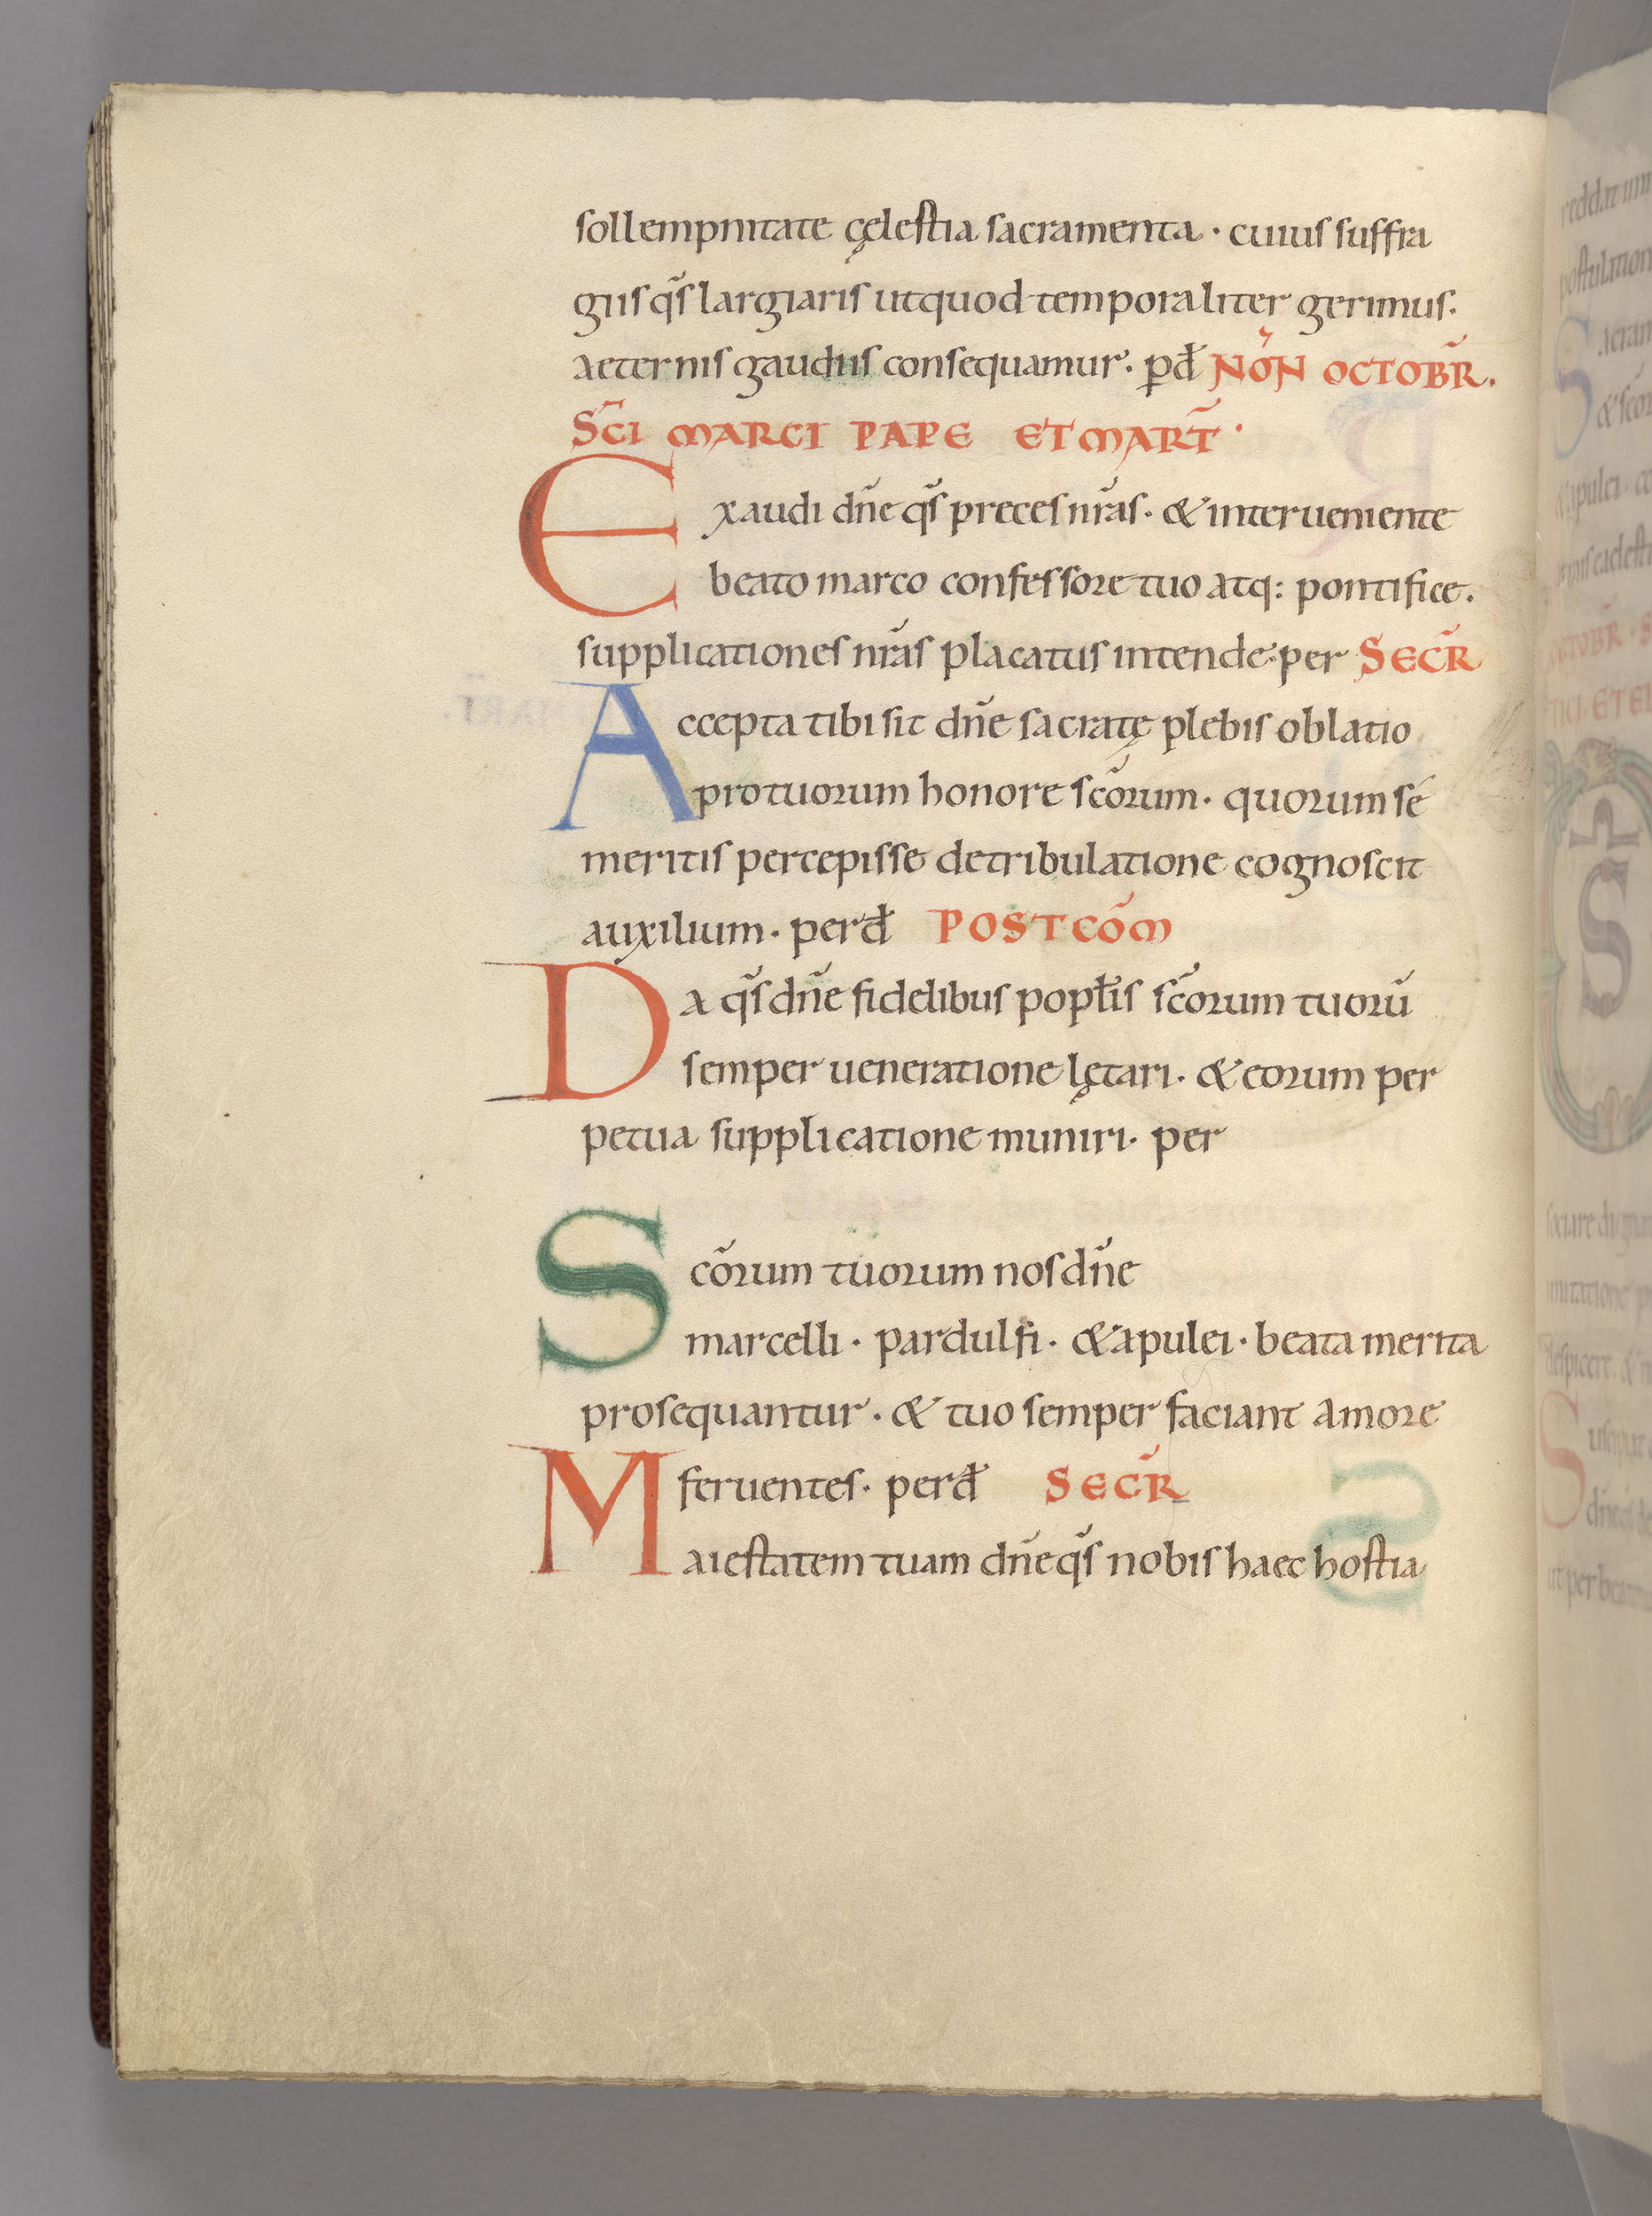 sollempnitate çęlestia sacramenta · cuius suffra
giis q̄s largiaris ut quod temporaliter gerimus.
aeternis gaudiis consequamur. p̱ đ NOÑ OCTOBR̄.
SC̄I MARCI PAPE ET MART̄.
Exaudi dñe q̄s preces nr̄as. & interueniente
beato marco confessore tuo atq: pontifice.
supplicationes nr̄as placatus intende. per SECR̄
Accepta tibi sit dñe sacratę plebis oblatio
pro tuorum honore sc̄orum. quorum se
meritis percepisse de tribulatione cognoscit
auxilium. per đ POST COM̄
Da q̄s dñe fidelibus popłis sc̄orum tuorū
semper ueneratione lętari. & eorum per
petua supplicatione muniri. per
Sc̄orum tuorum nos dñe
marcelli. pardulfi. & apulei. beata merita
prosequantur. & tuo semper faciant amore
feruentes. per đ SECR̄
Maiestatem tuam dñe q̄s nobis haec hostia